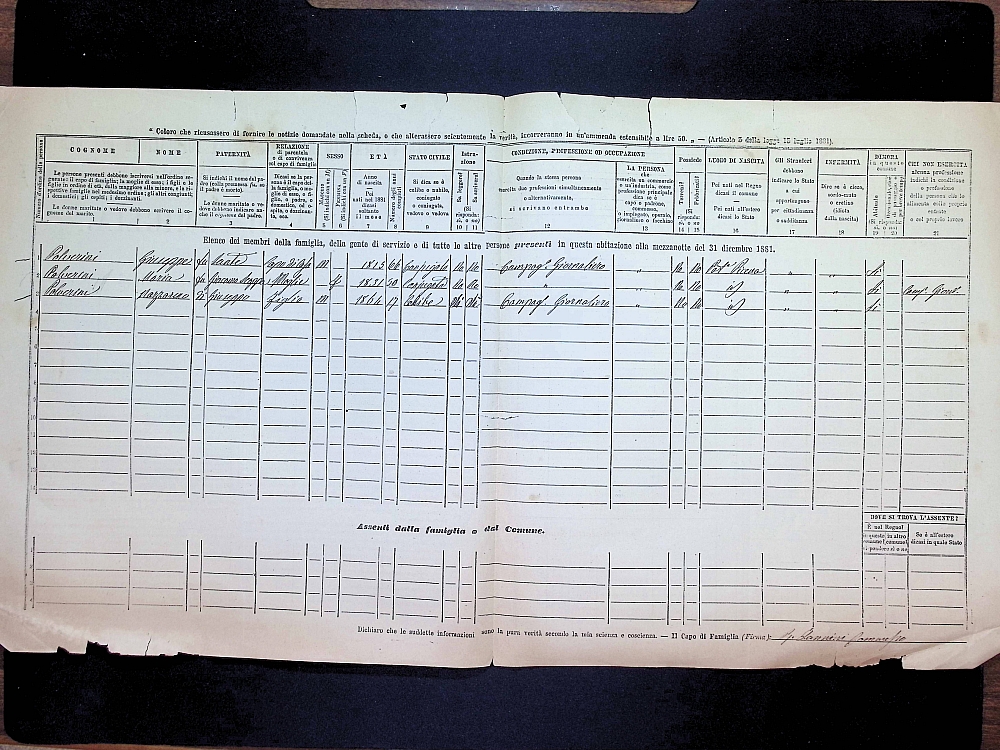 " Coloro che ricusassero di fornire le notizie domandate nella scheda, o che alterassero scientemente la verità, incorreranno in un'ammenda estensibile a lire 50. „ — (Articolo 5 della legge 15 luglio 1881).
Numero d'ordine delle persone
COGNOME NOME
Le persone presenti debbono iscriversi nell'ordine seguente: il capo di famiglia; la moglie di esso; i figli e le figlie in ordine di età, dalla maggiore alla minore, e le rispettive famiglie nel medesimo ordine; gli altri congiunti; i domestici; gli ospiti; i dozzinanti.
Le donne maritate o vedove debbono iscrivere il cognome del marito.
1 2
PATERNITÀ
Si indichi il nome del padre (colla premessa fu, se il padre è morto).
Le donne maritate o vedove debbono indicare anche il cognome del padre.
3
RELAZIONE di parentela o di convivenza col capo di famiglia
Dicasi se la persona è il capo della famiglia, o moglie di esso, o figlio, o padre, o domestica, od ospite, o dozzinante, ecc.
4
SESSO
Maschi (Si indichino con M)
Femmine (Si indichino con F)
5 6
ETÀ
Anno di nascita
Pei nati nel 1881 dicasi soltanto il mese
7
Numero degli anni compiuti
8
STATO CIVILE
Si dica se è celibe o nubile, coniugato o coniugata, vedovo o vedova
9
Istruzione
Sa leggere?
Sa scrivere?
(Si risponda: sì, o no)
10 11
CONDIZIONE, PROFESSIONE OD OCCUPAZIONE
Quando la stessa persona esercita due professioni simultaneamente o alternativamente, si scrivano entrambe
12
LA PERSONA che esercita un commercio o un'industria, come professione principale dica se è capo o padrone, commesso, o impiegato, operaio, giornaliero o facchino
13
Possiede
Terreni?
Fabbricati?
(Si risponda: sì, o no)
14 15
LUOGO DI NASCITA
Pei nati nel Regno dicasi il comune
Pei nati all'estero dicasi lo Stato
16
Gli Stranieri debbono indicare lo Stato a cui appartengono per cittadinanza o sudditanza
17
INFERMITÀ
Dire se è cieco, sordo-muto o cretino (idiota dalla nascita)
18
DIMORA in questo comune
Abituale
(Si risponda: sì, o no)
19 20
CHI NON ESERCITA alcuna professione indichi la condizione o professione della persona che lo alimenta colla propria entrata o col proprio lavoro
21
Elenco dei membri della famiglia, della gente di servizio e di tutte le altre persone presenti in questa abitazione alla mezzanotte del 31 dicembre 1881.
Giuseppe fu Sante Capo di Casa M 1815 66 Coniugato No No Campag. Giornaliero „ No No „ „ Si
Maria fu Moglie F 1831 50 Coniugata No No „ No No id „ „ Si Camp. Giorn.
di Giuseppe Figlio M 1864 17 Celibe No No Campag. Giornaliero „ No No id „ „ Si
Assenti dalla famiglia o dal Comune.
DOVE SI TROVA L'ASSENTE?
È nel Regno?
in questo comune
in altro comune
(Si risponda sì o no)
Se è all'estero dicasi in quale Stato
Dichiaro che le suddette informazioni sono la pura verità secondo la mia scienza e coscienza. — Il Capo di Famiglia (Firma):